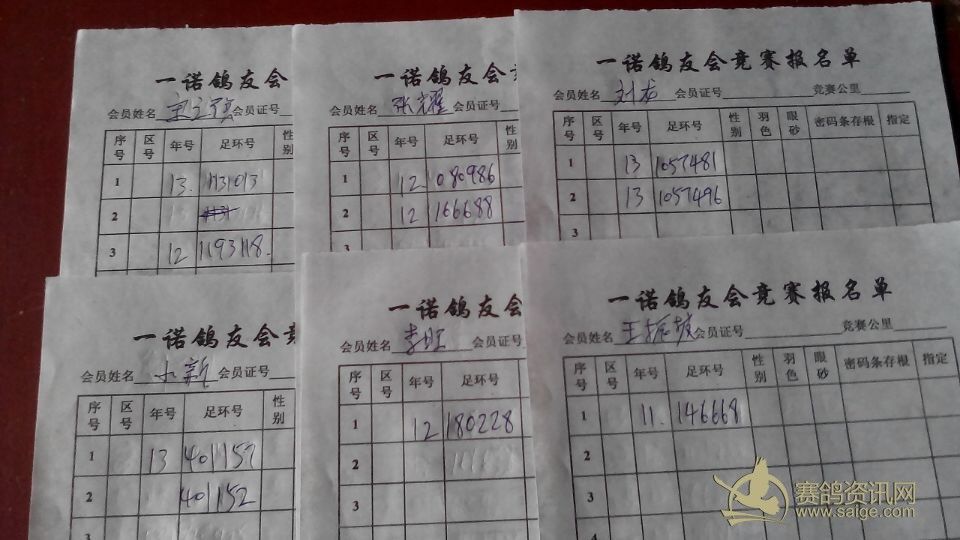 一诺鸽友会
会员姓名 会员证号
序号 区号 年号 足环号 性别
1 13. 1131013
2 13
3 12 1193118.
一诺鸽友会竞
会员姓名 张耀 会员证号
序号 区号 年号 足环号 性别
1 12. 080986
2 12 166688
3
一诺鸽友会竞赛报名单
会员姓名 刘龙 会员证号 竞赛公里
序号 区号 年号 足环号 性别 羽色 眼砂 密码条存根 指定
1 13 1057481
2 13 1057496
3
一诺鸽友会竞
会员姓名 小新 会员证号
序号 区号 年号 足环号 性别
1 13 401157
2 401152
一诺鸽友会
会员姓名 李旺 会员证号
序号 区号 年号 足环号
1 12 180228
2
3
一诺鸽友会竞赛报名单
会员姓名 王振坡 会员证号 竞赛公里
序号 区号 年号 足环号 性别 羽色 眼砂 密码条存根 指定
1 11. 146668
2
3
4
赛鸽资讯网
www.saige.com